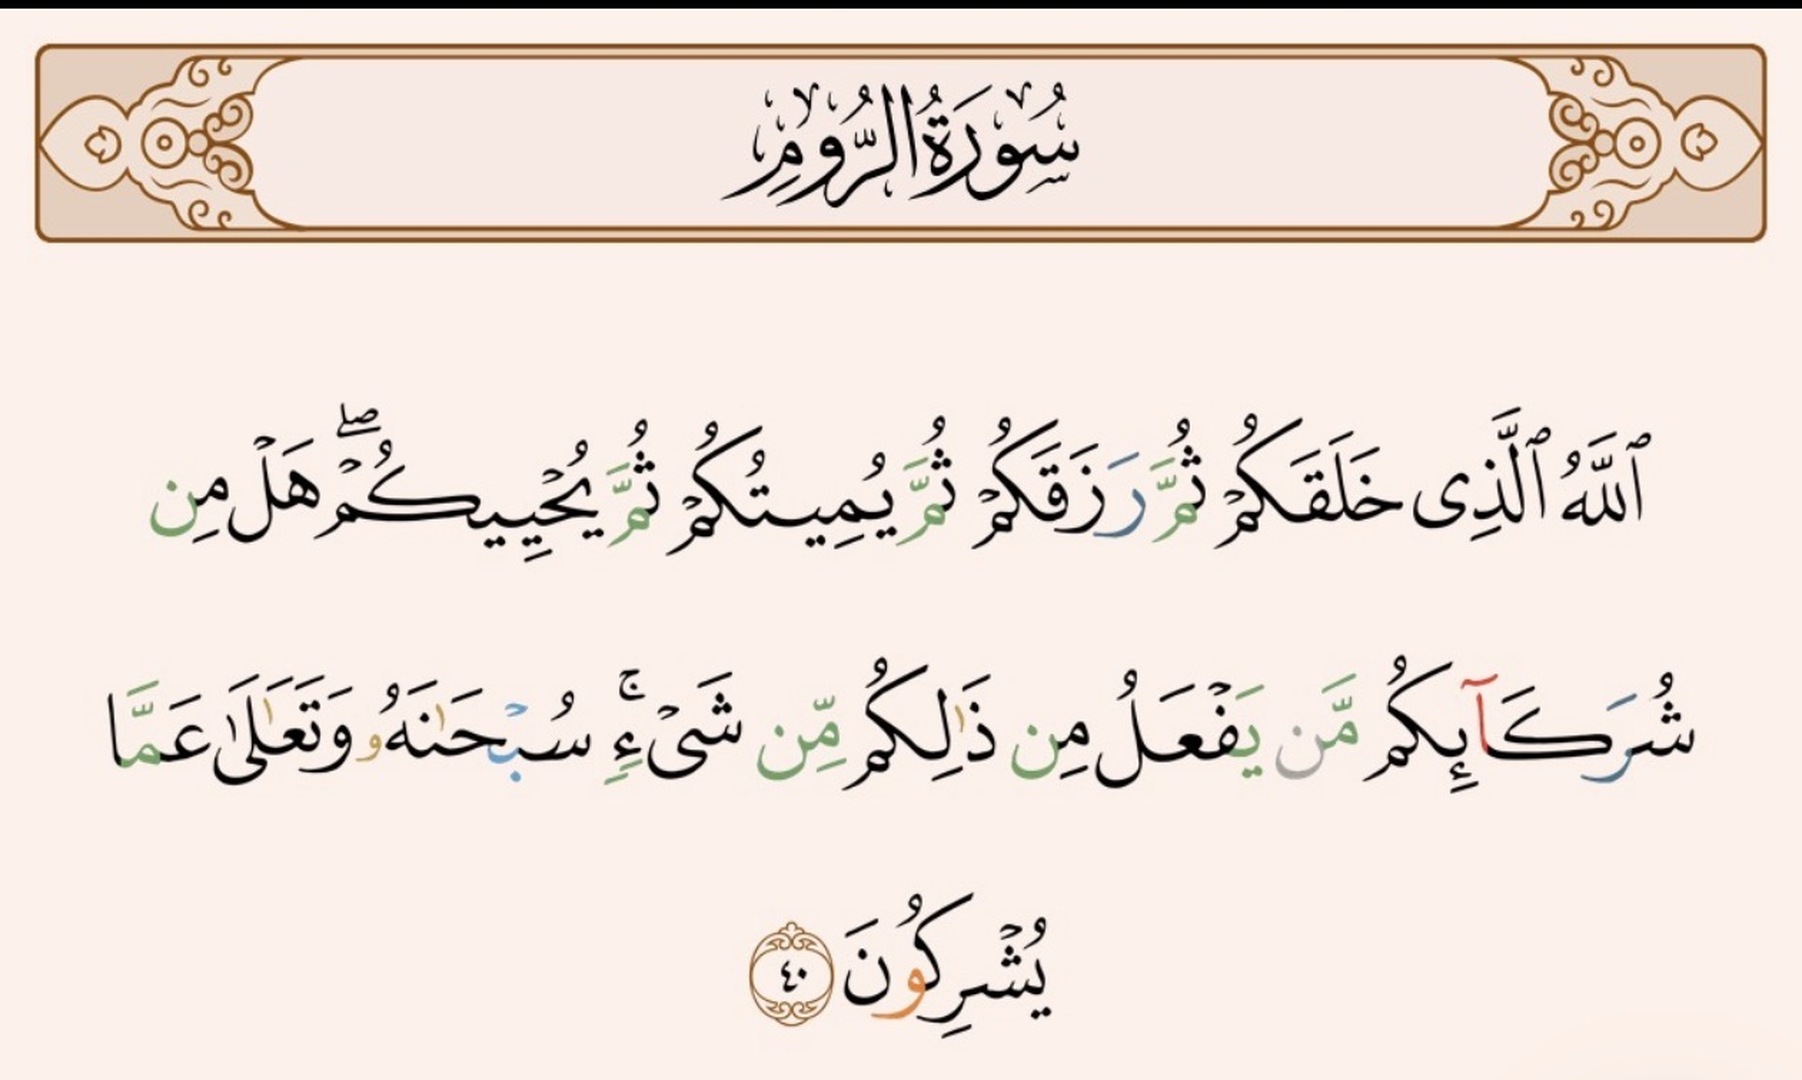 سُورَةُ الرُّومِ
ٱللَّهُ ٱلَّذِى خَلَقَكُمْ ثُمَّ رَزَقَكُمْ ثُمَّ يُمِيتُكُمْ ثُمَّ يُحْيِيكُمْ ۖ هَلْ مِن
شُرَكَآئِكُم مَّن يَفْعَلُ مِن ذَٰلِكُم مِّن شَىْءٍ ۚ سُبْحَـٰنَهُۥ وَتَعَـٰلَىٰ عَمَّا
يُشْرِكُونَ ٤٠